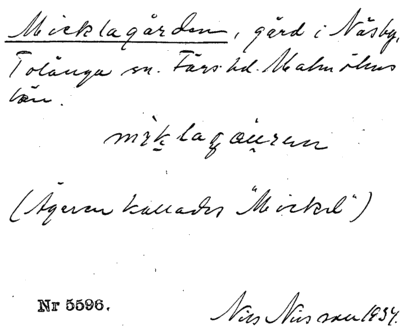 Micklagården, gård i Näsby,
Tolånga sn. Färs hd. Malmöhus
län.
(Ägaren kallades "Mickel")
Nr 5596.
Nils Nilsson 1934.